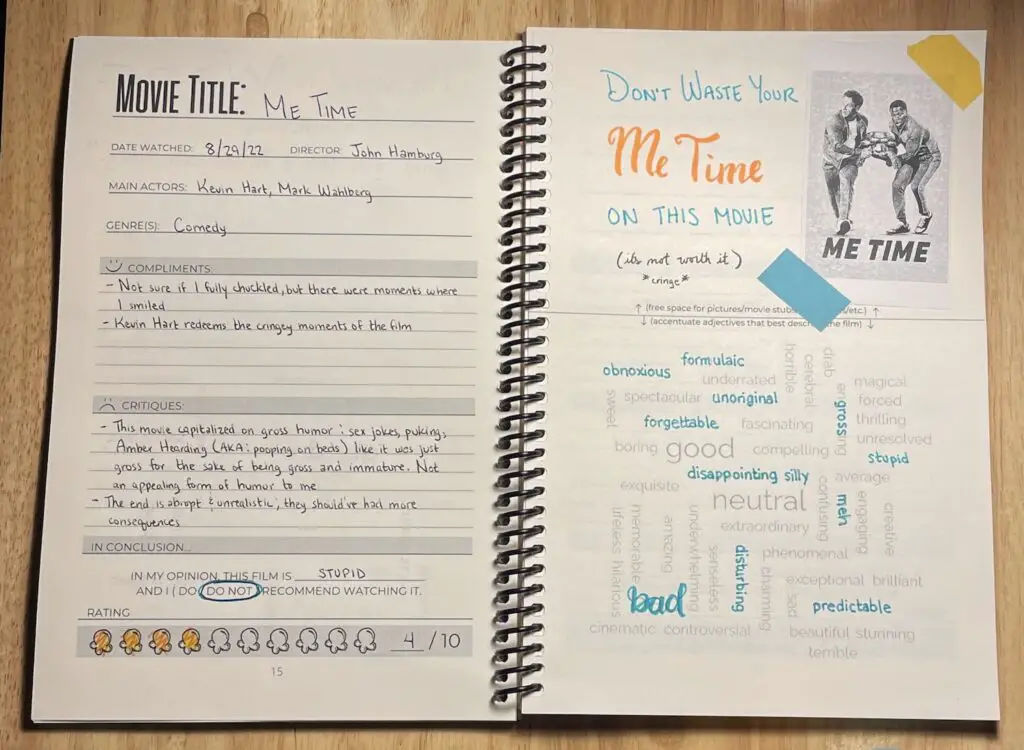 MOVIE TITLE: ME TIME
DATE WATCHED: 8/29/22 DIRECTOR: John Hamburg
MAIN ACTORS: Kevin Hart, Mark Wahlberg
GENRE(S): Comedy
COMPLIMENTS:
- Not sure if I fully chuckled, but there were moments where
I smiled
- Kevin Hart redeems the cringey moments of the film
CRITIQUES:
- This movie capitalized on gross humor: sex jokes, puking,
Amber Hearding (AKA: pooping on beds) like it was just
gross for the sake of being gross and immature. Not
an appealing form of humor to me
- The end is abropt & unrealistic; they should've had more
consequences
IN CONCLUSION...
IN MY OPINION, THIS FILM IS STUPID
AND I ( DO / DO NOT ) RECOMMEND WATCHING IT.
RATING
4 / 10
15
DON'T WASTE YOUR
Me Time
ON THIS MOVIE
(its not worth it)
*cringe*
ME TIME
↑ (free space for pictures/movie stubs /etc.) ↑
↓ (accentuate adjectives that best descr the film) ↓
formulaic
obnoxious
underrated
horrible
cerebral
drab
magical
sweet
spectacular
unoriginal
engrossing
forced
forgettable
fascinating
thrilling
boring
good
compelling
unresolved
stupid
disappointing
silly
average
exquisite
neutral
confusing
meh
engaging
creative
extraordinary
lifeless
hilarious
memorable
amazing
underwhelming
senseless
disturbing
phenomenal
charming
bad
sad
exceptional
brilliant
predictable
cinematic
controversial
beautiful
stunning
terrible